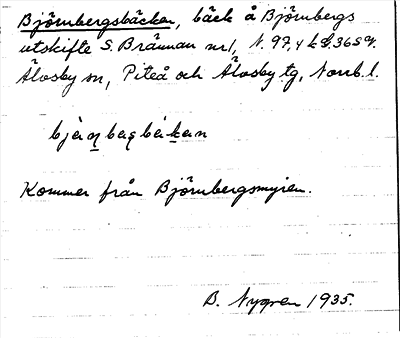 Björnbergsbäcken, bäck å Björnbergs
utskifte S. Brännan nr1, N. 97,4 k S.36SV.
Älvsby sn, Piteå och Älvsby tg, Norrb. l.
Kommer från Björnbergsmyren.
B. Nygren 1935.